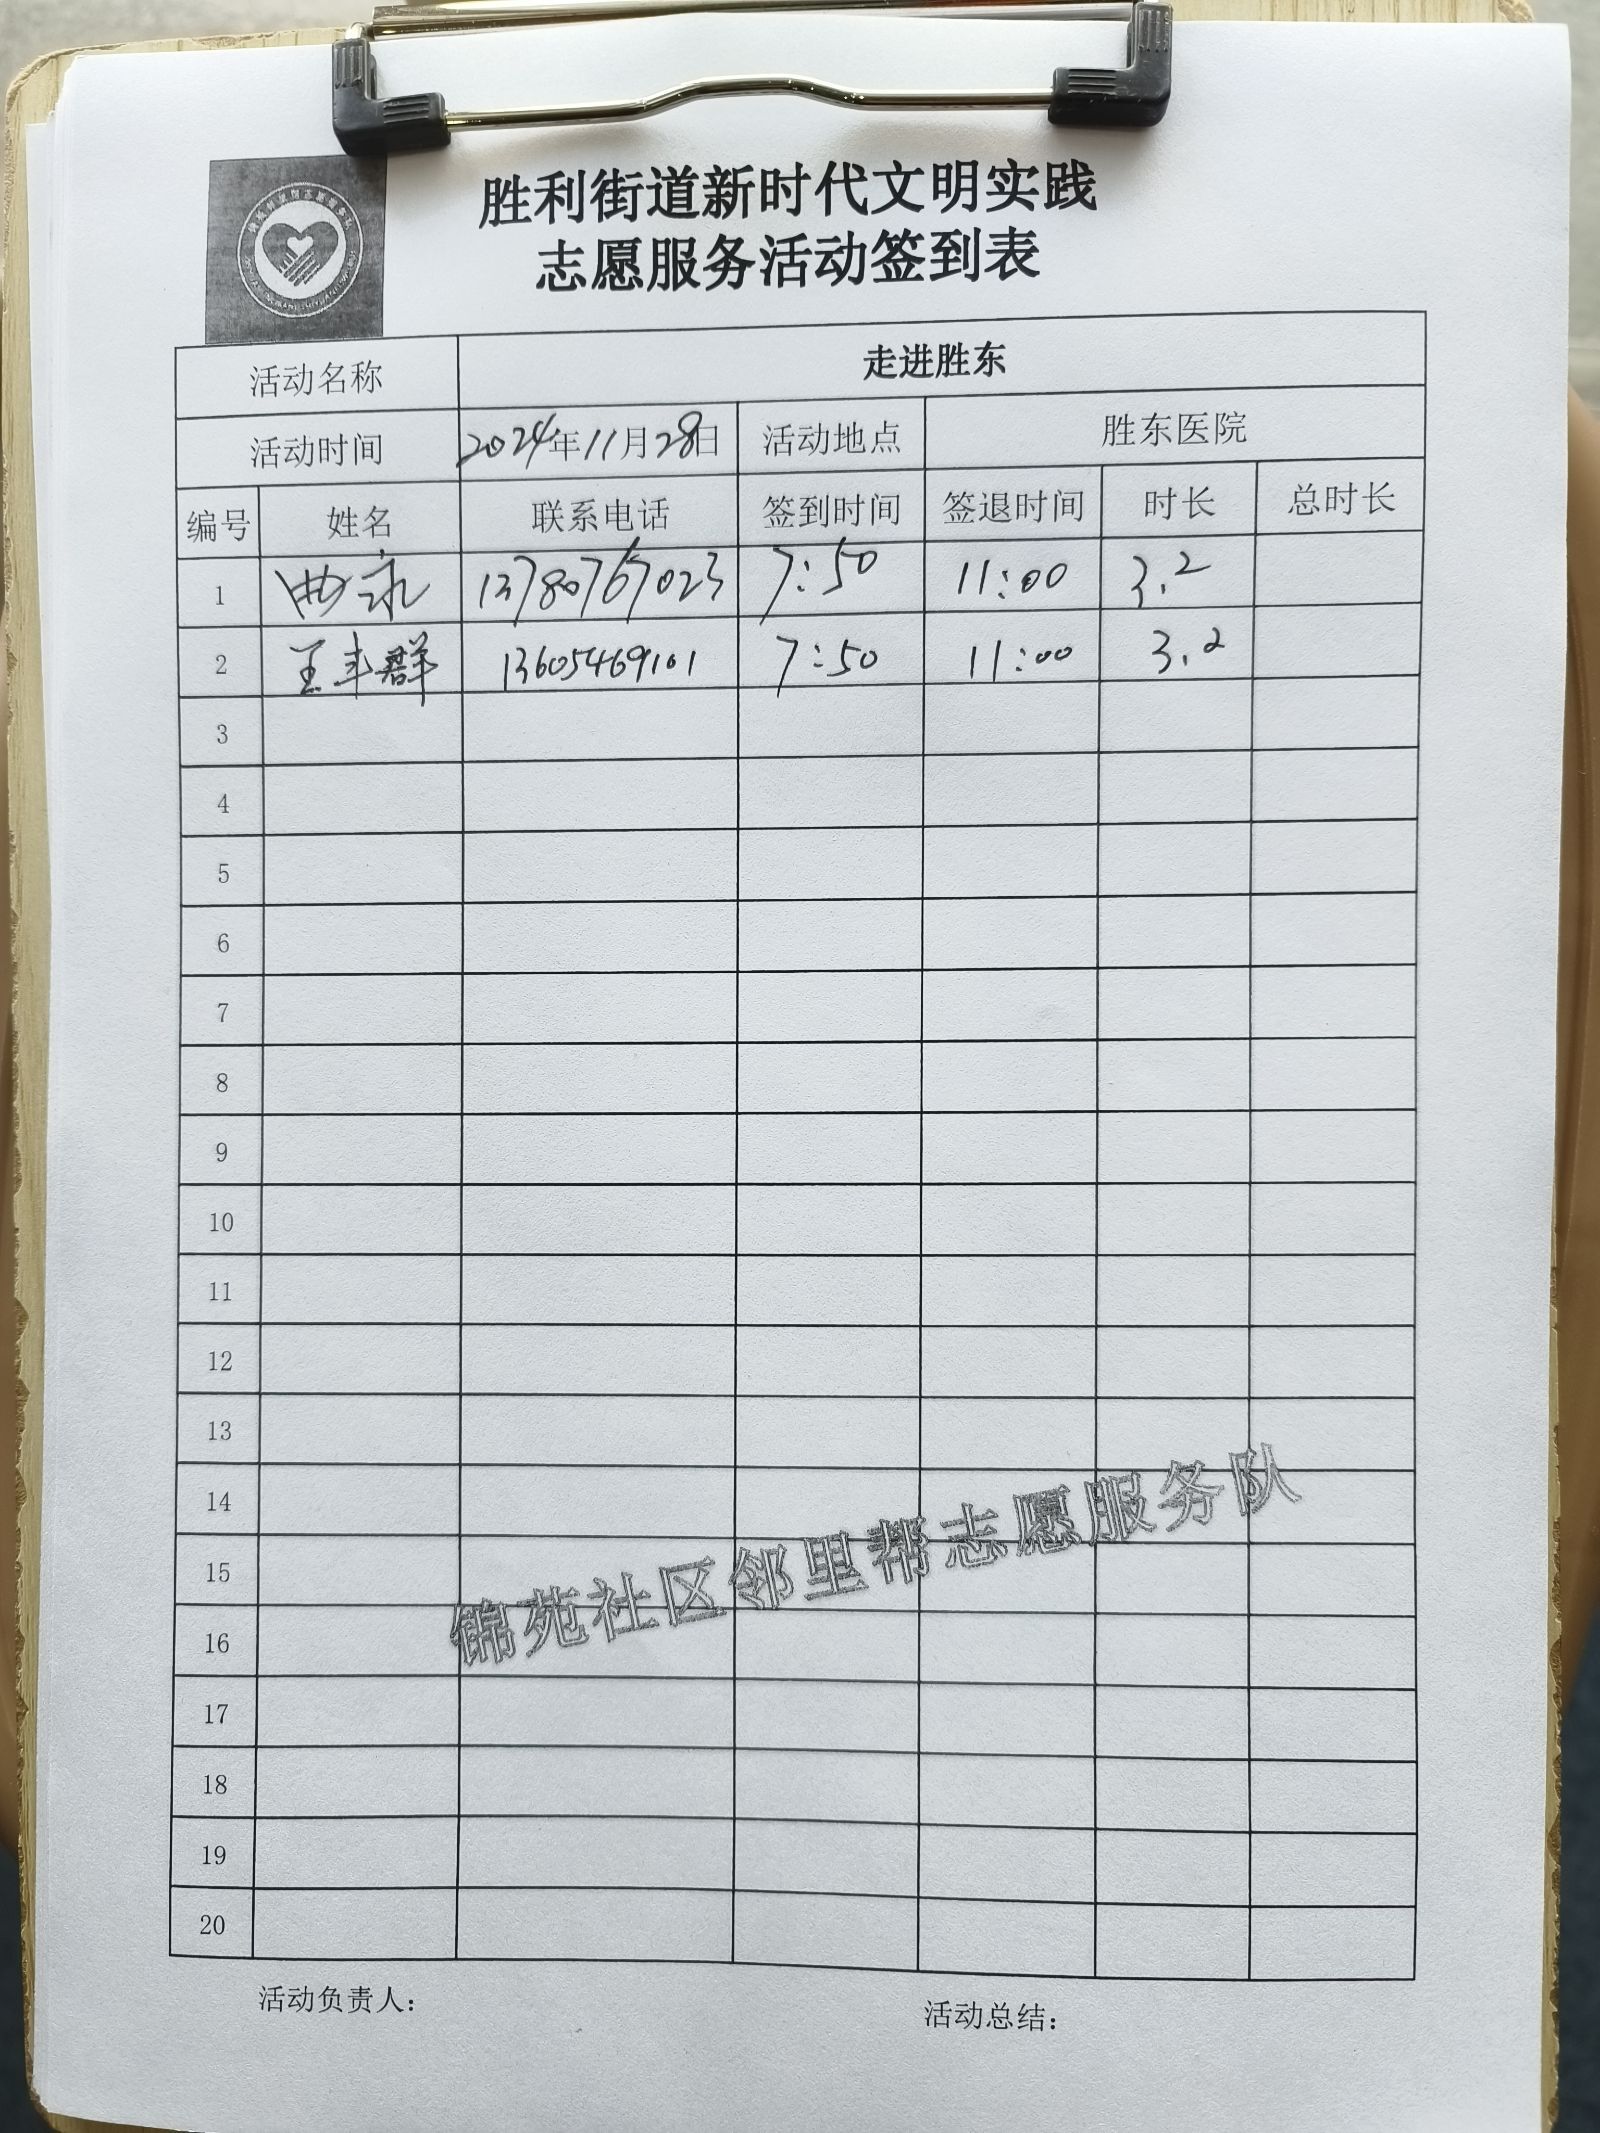 胜利街道新时代文明实践
志愿服务活动签到表
活动名称 走进胜东
活动时间 2024年11月28日 活动地点 胜东医院
编号 姓名 联系电话 签到时间 签退时间 时长 总时长
1 曲永 13780767023 7:50 11:00 3.2
2 王丰群 13605469101 7:50 11:00 3.2
3
4
5
6
7
8
9
10
11
12
13
14
15
16
17
18
19
20
锦苑社区邻里帮志愿服务队
活动负责人： 活动总结：